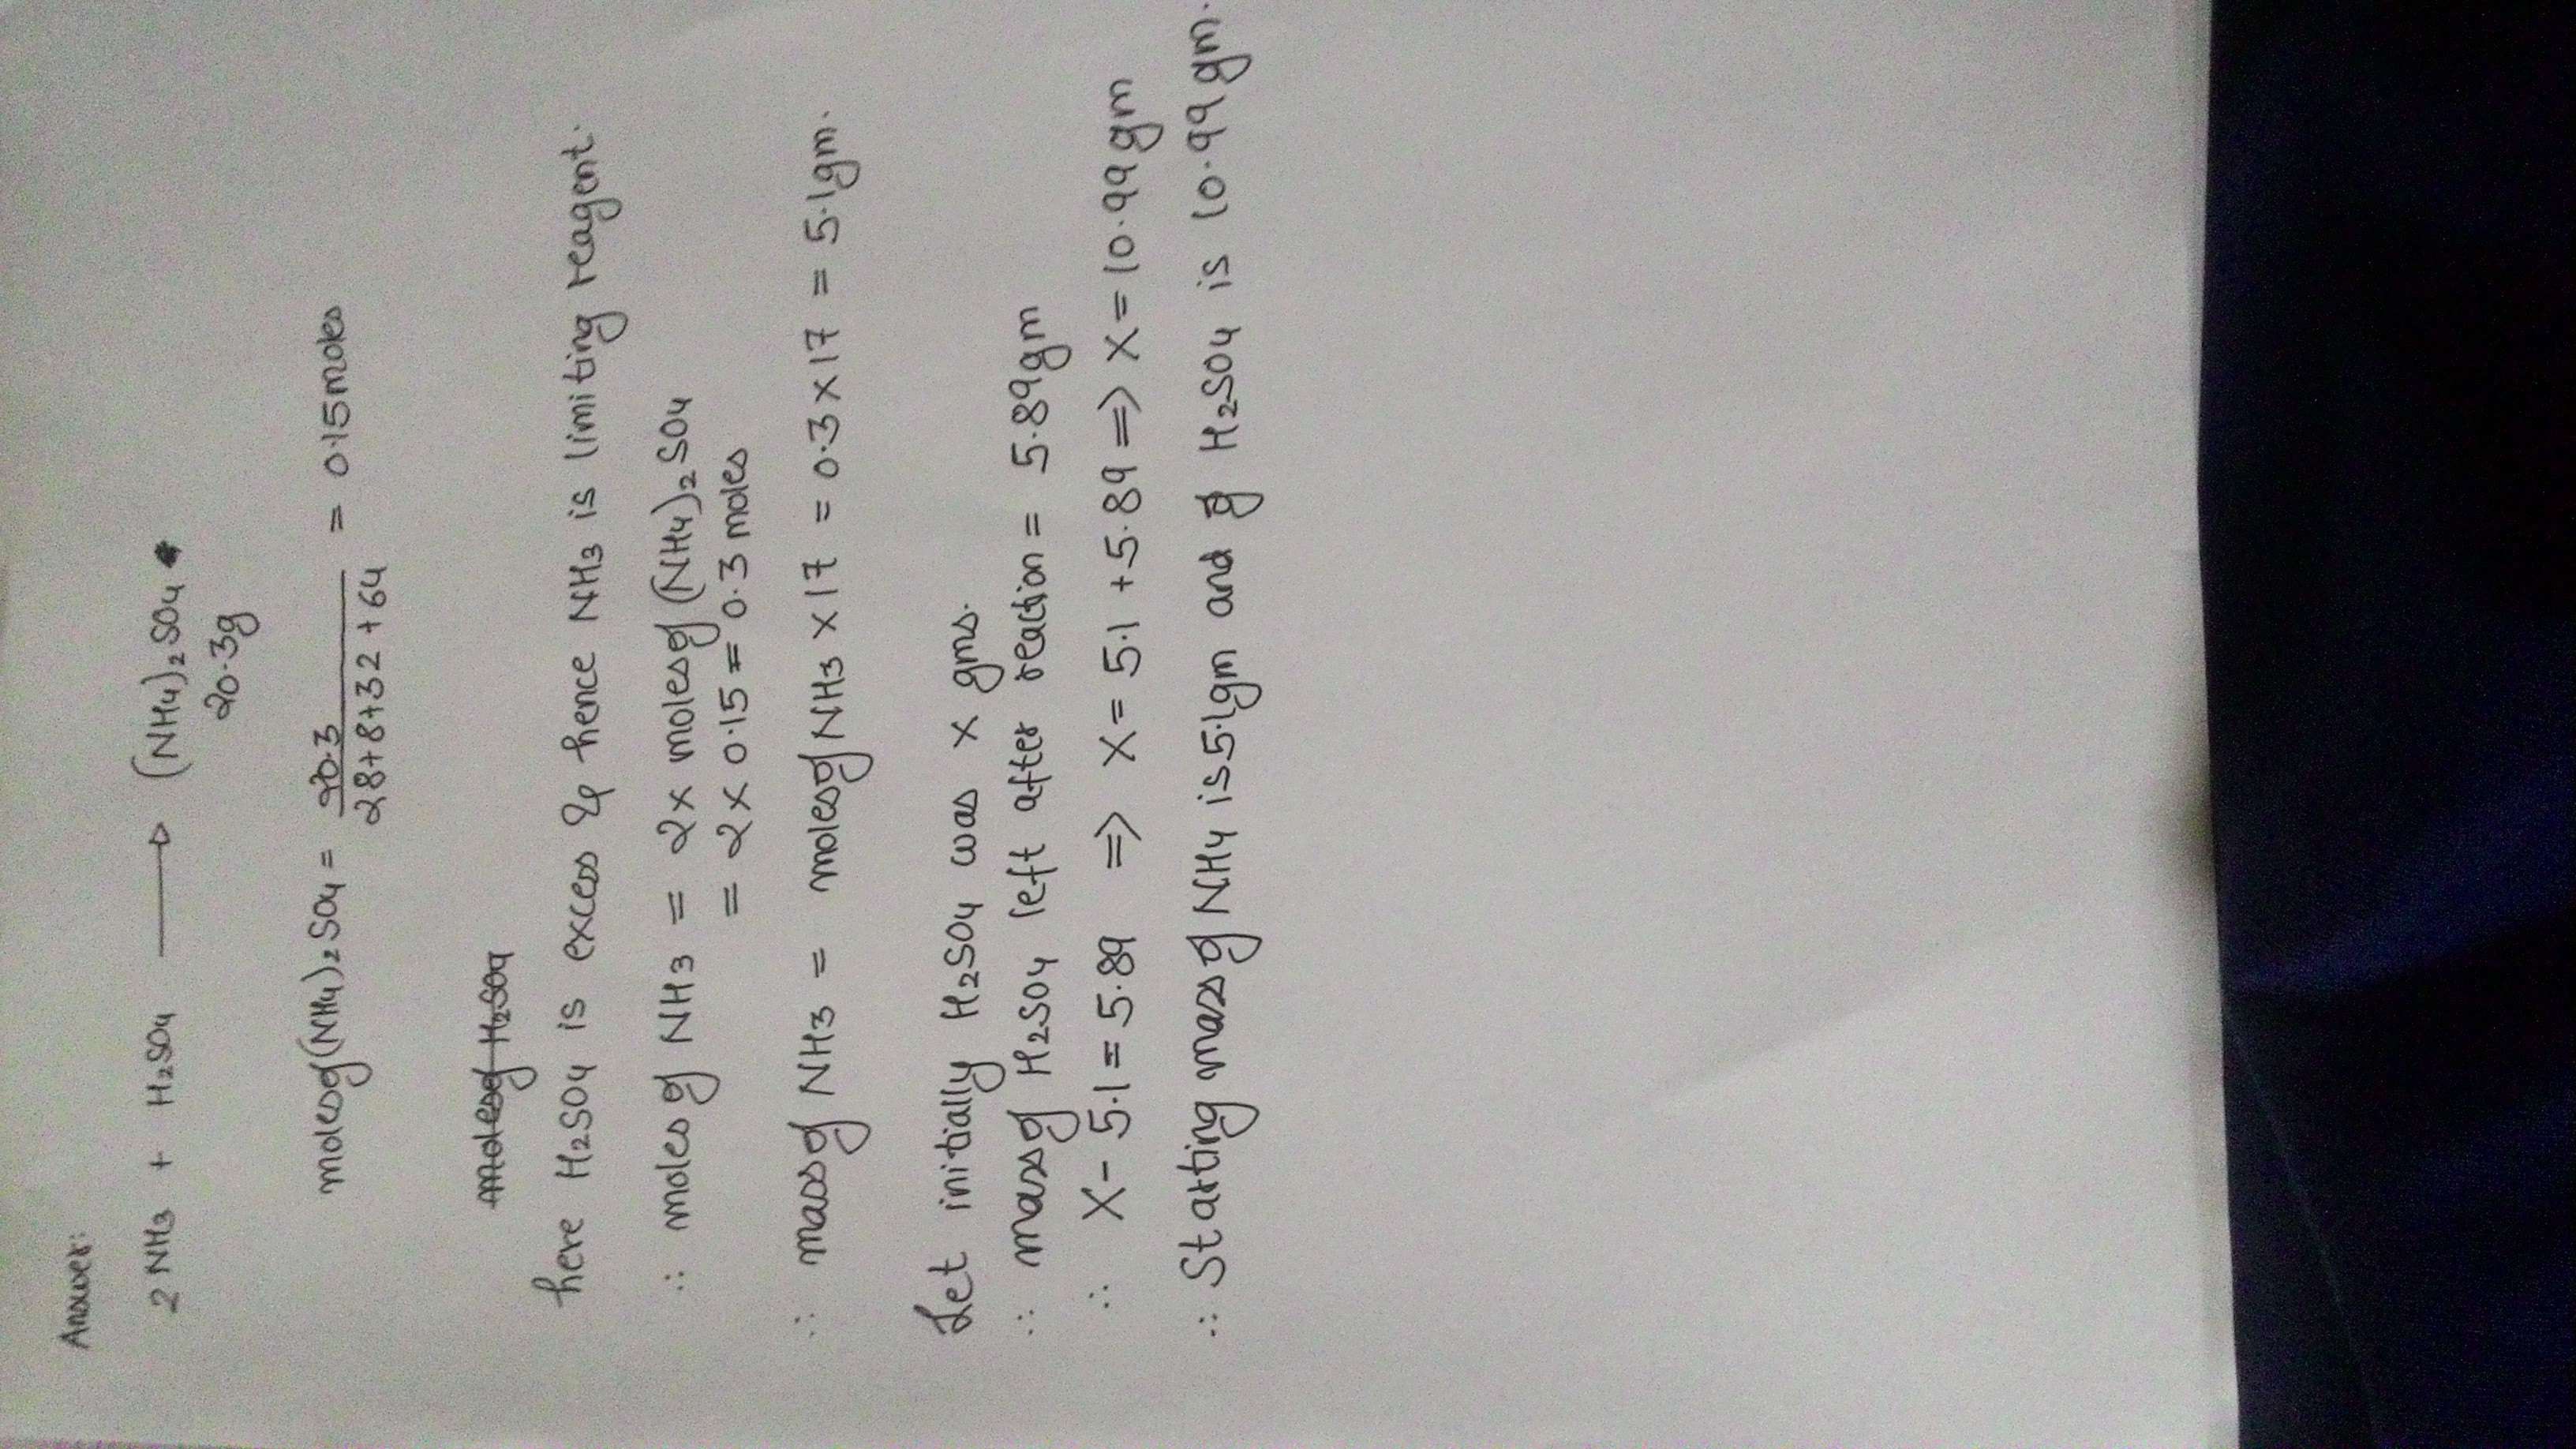 Answer:
2 NH3 + H2SO4 → (NH4)2SO4
20.3g
moles of (NH4)2SO4 = 20.3 / 28+8+32+64 = 0.15 moles
moles of H2SO4
here H2SO4 is excess & hence NH3 is limiting reagent.
∴ moles of NH3 = 2x moles of (NH4)2SO4
= 2 x 0.15 = 0.3 moles
∴ mass of NH3 = moles of NH3 x 17 = 0.3 x 17 = 5.1gm.
Let initially H2SO4 was x gms.
∴ mass of H2SO4 left after reaction = 5.89gm
∴ X - 5.1 = 5.89 => X = 5.1 + 5.89 => X = 10.99 gm
∴ Starting mass of NH4 is 5.1gm and of H2SO4 is 10.99 gm.